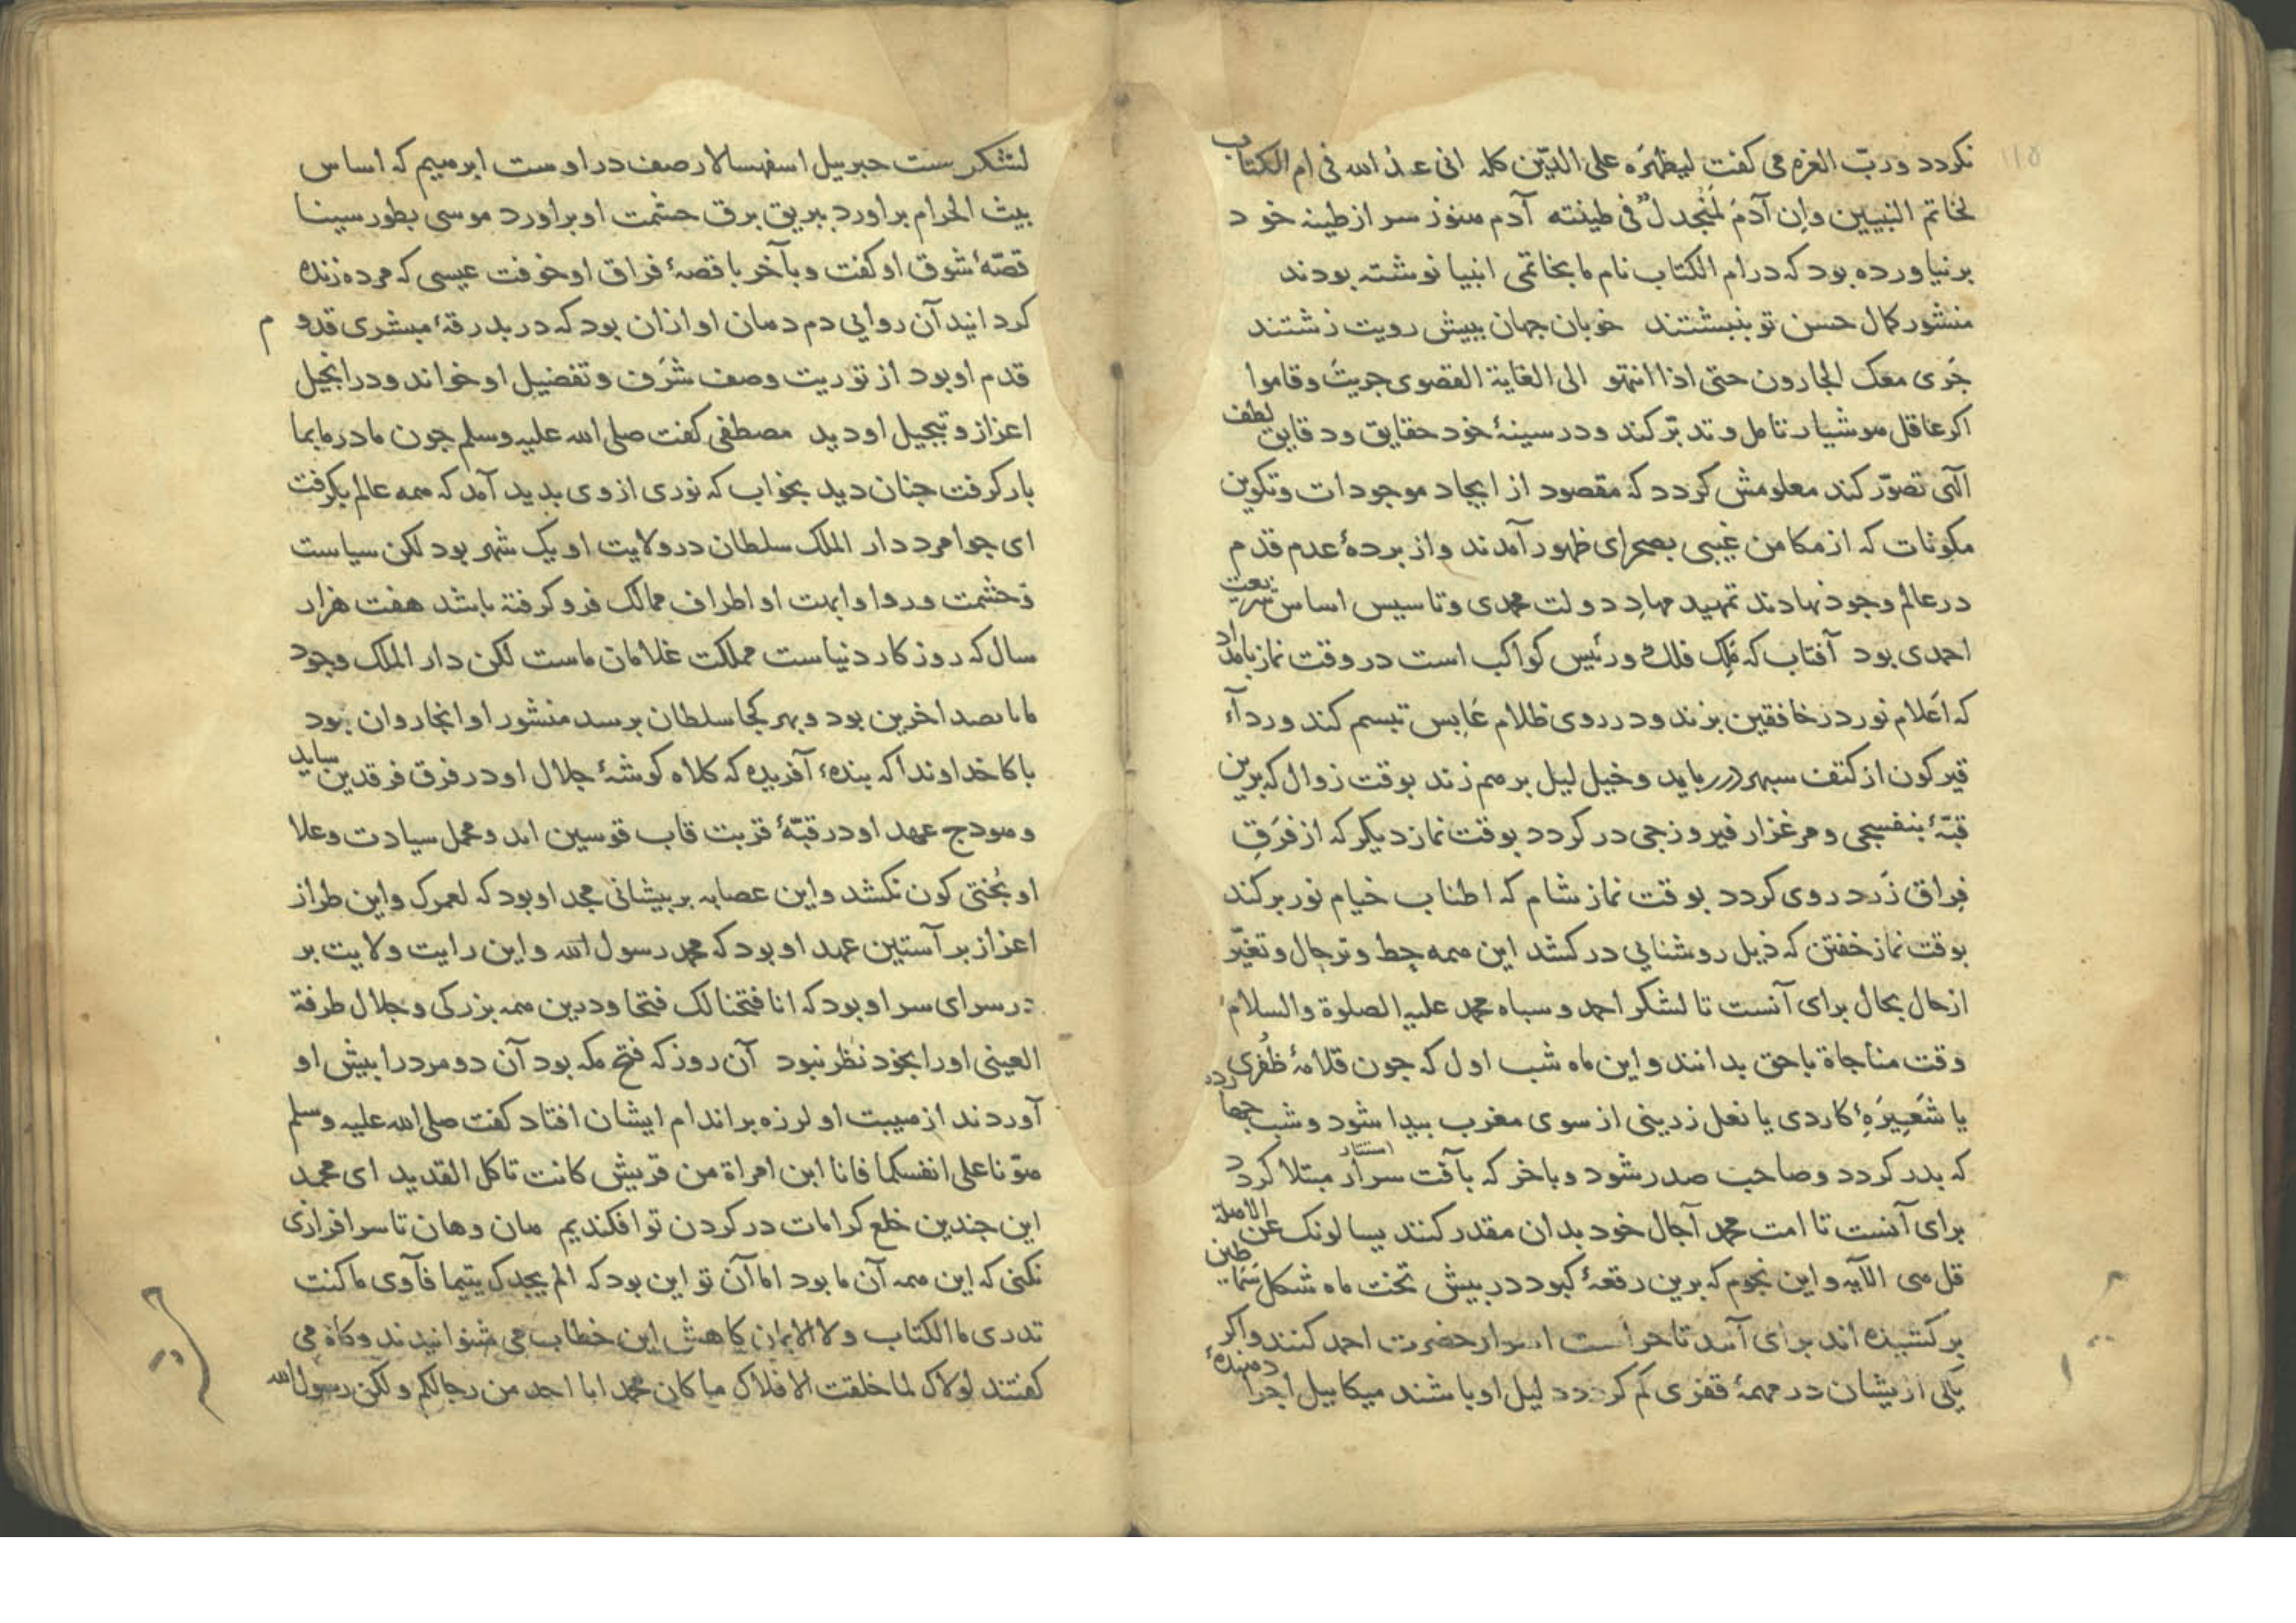 ۱۱۵
نکردد و ربّ العزه می کفت لیظهرَه علی الدّین کله انی عند الله فی ام الکتاب
لخاتم النبیین وان آدمَ لمُنجدلٌ فی طینته آدم هنوز سر از طینه خود
برنیاورده بود که در ام الکتاب نام ما بخاتمی انبیا نوشته بودند
منشور کمال حسن تو بنبشتند خوبان جهان ببیش رویت زشتند
جَری معک الجارون حتی اذا انتهو الی الغایة القصوی جریتَ وقاموا
اکر عاقل هوشیار تامل و تدبّر کند و در سینهٔ خود حقایق و دقایق لطف
الٓهی تصوّر کند معلومش کردد که مقصود از ایجاد موجودات و تکوین
مکونات که از مکامن غیبی بصحرای ظهور آمدند و از بردهٔ عدم قدم
در عالم وجود نهادند تمهید مهادِ دولت محمدی و تاسیس اساس شریعت
احمدی بود آفتاب که مَلِک فلک و رئیس کواکب است در وقت نماز بامداد
که اَعلام نور در خافقین بزند و در روی ظلام عَابس تبسم کند و رداء
قیرکون از کتف سبهر در رباید و خیل لیل برهم زند بوقت زوال که برین
قبّهٔ بنفسجی و مرغزار فیروزجی در کردد بوقت نماز دیکر که از فَرَقِ
فِراق زَرد روی کردد بوقت نماز شام که اطناب خیام نور برکند
بوقت نماز خفتن که ذیل روشنایی در کشد این همه حِط و ترحال و تغیّر
از حال بحال برای آنست تا لشکر احمد و سباه محمد علیه الصلوة والسلام
وقت مناجاة با حق بدانند و این ماه شب اول که جون قلامهٔ ظُفری
یا شَعِیرَهٔ کاردی یا نعل زرینی از سوی مغرب بیدا شود و شب جهارده
که بدر کردد و صاحب صدر شود و باخر که بآفت سرار استتار مبتلا کردد
برای آنست تا امت محمد آجال خود بدان مقدر کنند یسالونک عن الاهلة
قل هی الآیه و این نجوم که برین رقعهٔ کبود در بیش تخت ماه شکل سَمَاطین
برکشیده اند برای آنند تا حراست اسوار حضرت احمد کنند و اکر
یکی ازیشان در مهمهٔ قفری کم کردد دلیل او باشند میکاییل اجرا دهندهٔ
لشکرست جبرییل اسفهسالار صف در اوست ابرهیم که اساس
بیت الحرام براورد ببریق برق حشمت او براورد موسی بطور سینا
قصّهٔ شوق او کفت و بآخر با قصهٔ فراق او خوفت عیسی که مرده زنده
کردانید آن روایی دم دمان او ازان بود که در بدرقهٔ مبشری قدوم
قدم او بود از توریت وصف شَرَف و تفضیل او خواند و در انجیل
اعزاز و تبجیل او دید مصطفی کفت صلی الله علیه وسلم جون مادر ما بما
بار کرفت جنان دید بخواب که نوری از وی بدید آمد که همه عالم بکرفت
ای جوامرد دار الملک سلطان در ولایت او یک شهر بود لکن سیاست
و حشمت و روا و ابهت او اطراف ممالک فرو کرفته باشد هفت هزار
سال که روزکار دنیاست مملکت غلامان ماست لکن دار الملک وجود
ما بصد اخرین بود و بهر کجا سلطان برسد منشور او انجا روان بود
باکا خداوندا که بندهٔ آفریده که کلاه کوشهٔ جلال او در فرق فرقدین ساید
و هودج عهد او در قبّهٔ قربت قاب قوسین امد و محمل سیادت و علا
او بُختی کون نکشد و این عصابه بر بیشانی مجد او بود که لعمرک و این طراز
اعزاز بر آستین عهد او بود که محمد رسول الله و این رایت ولایت بر
در سرای سر او بود که انا فتحنا لک فتحا و درین همه بزرکی و جلال طرفة
العینی او را بخود نظر نبود آن روز که فتح مکه بود آن دو مرد را بیش او
آوردند از هیبت او لرزه بر اندام ایشان افتاد کفت صلی الله علیه وسلم
هوّنا علی انفسکما فانا ابن امراة من قریش کانت تاکل القدید ای محمد
این جندین خلع کرامات در کردن تو افکندیم هان و هان تا سرافرازی
نکنی که این همه آن ما بود اما آن تو این بود که الم یجدک یتیما فآوی ما کنت
تدری ما الکتاب ولا الایمان کاهش این خطاب می شنوانیدند و کاه می
کفتند لولاک لما خلقت الافلاک ما کان محمد ابا احد من رجالکم ولکن رسول الله